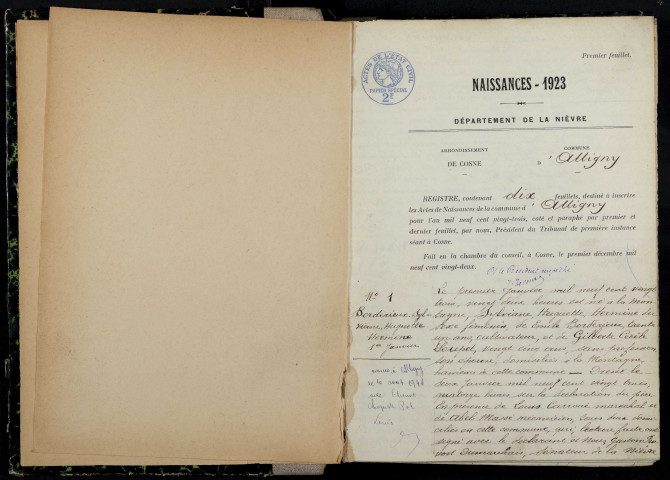 Premier feuillet.
ACTES DE L'ÉTAT CIVIL
PAPIER SPÉCIAL
2F
NAISSANCES - 1923
DÉPARTEMENT DE LA NIÈVRE
ARRONDISSEMENT
DE COSNE
COMMUNE
D'Alligny
REGISTRE, contenant dix feuillets, destiné à inscrire
les Actes de Naissances de la commune d'Alligny
pour l'an mil neuf cent vingt-trois, coté et paraphé par premier et
dernier feuillet, par nous, Président du Tribunal de première instance
séant à Cosne.
Fait en la chambre du conseil, à Cosne, le premier décembre mil
neuf cent vingt-deux.
N° 1
Hermine
1er Janvier
mariée à Alligny
le 10 1941
avec
Auguste
Louis
Le premier Janvier mil neuf cent vingt
trois, vingt deux heures est né à la Mon
tagne, Sylviane, Huguette, Hermine du
sexe féminin, de Emile
un ans, cultivateur, et de Gilberte
vingt cinq ans, sans profession
son épouse, domiciliés à la Montagne
hameau de cette commune — Dressé le
deux janvier mil neuf cent vingt trois,
heures, sur la déclaration du père
en présence de Louis maréchal et
de Abel Masse mécanicien, tous deux domi
ciliés en cette commune, qui, lecture faite ont
signé avec le déclarant et Nous, Gaston
sénateur de la Nièvre